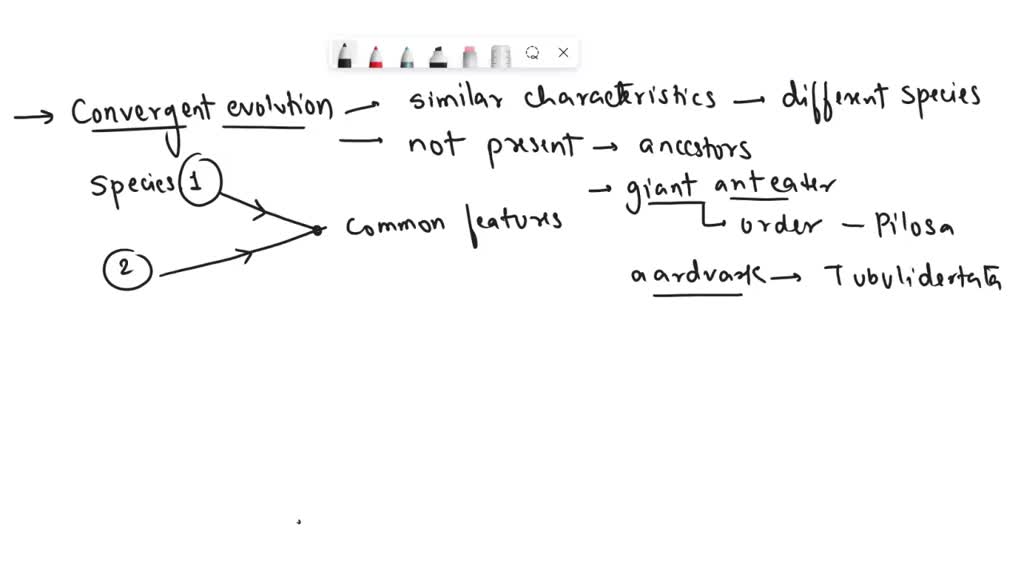 → Convergent evolution — similar characteristics — different species
— not present → ancestors
Species 1
→ giant anteater
common features
order — Pilosa
2
aardvark → Tubulidertata